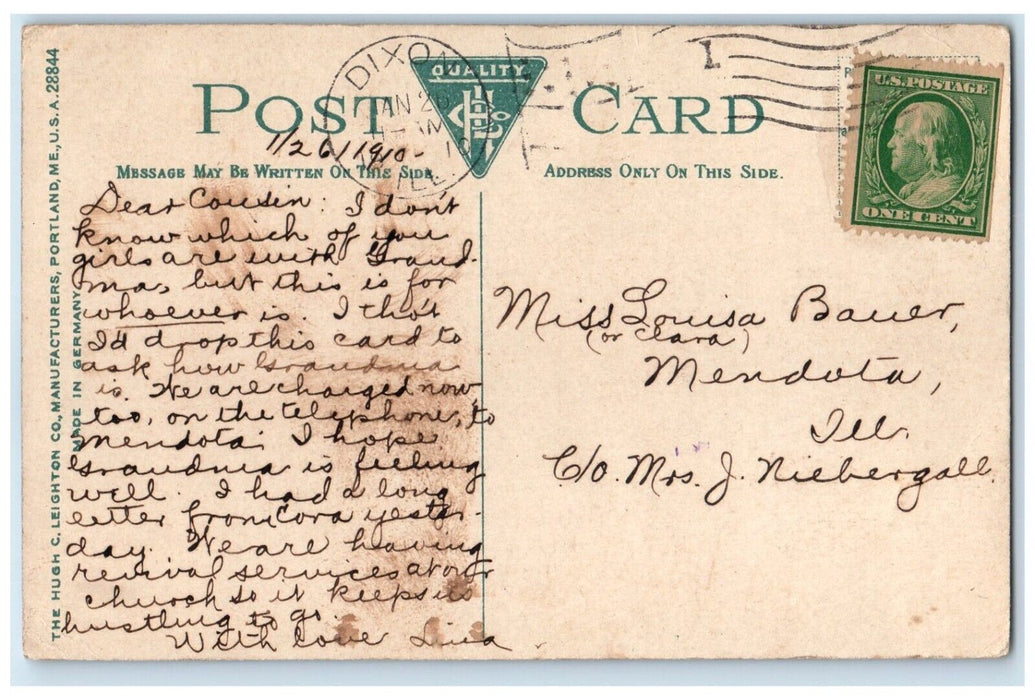 THE HUGH C. LEIGHTON CO., MANUFACTURERS, PORTLAND, ME., U.S.A. 28844
MADE IN GERMANY
POST CARD
QUALITY
DIXON
JAN 26
ILL.
1/26/1910-
U.S. POSTAGE
ONE CENT
MESSAGE MAY BE WRITTEN ON THIS SIDE.
ADDRESS ONLY ON THIS SIDE.
Dear Cousin: I don't
know which of you
girls are with Grand-
ma, but this is for
whoever is. I tho't
I'd drop this card to
ask how Grandma
is. We are charged now,
too, on the telephone, to
Mendota. I hope
Grandma is feeling
well. I had a long
letter from Cora yester-
day. We are having
revival services at our
church so it keeps us
hustling to go.
With love
Miss Louisa Bauer,
(or Clara)
Mendota,
Ill.
C/o. Mrs. J. Niebergall.